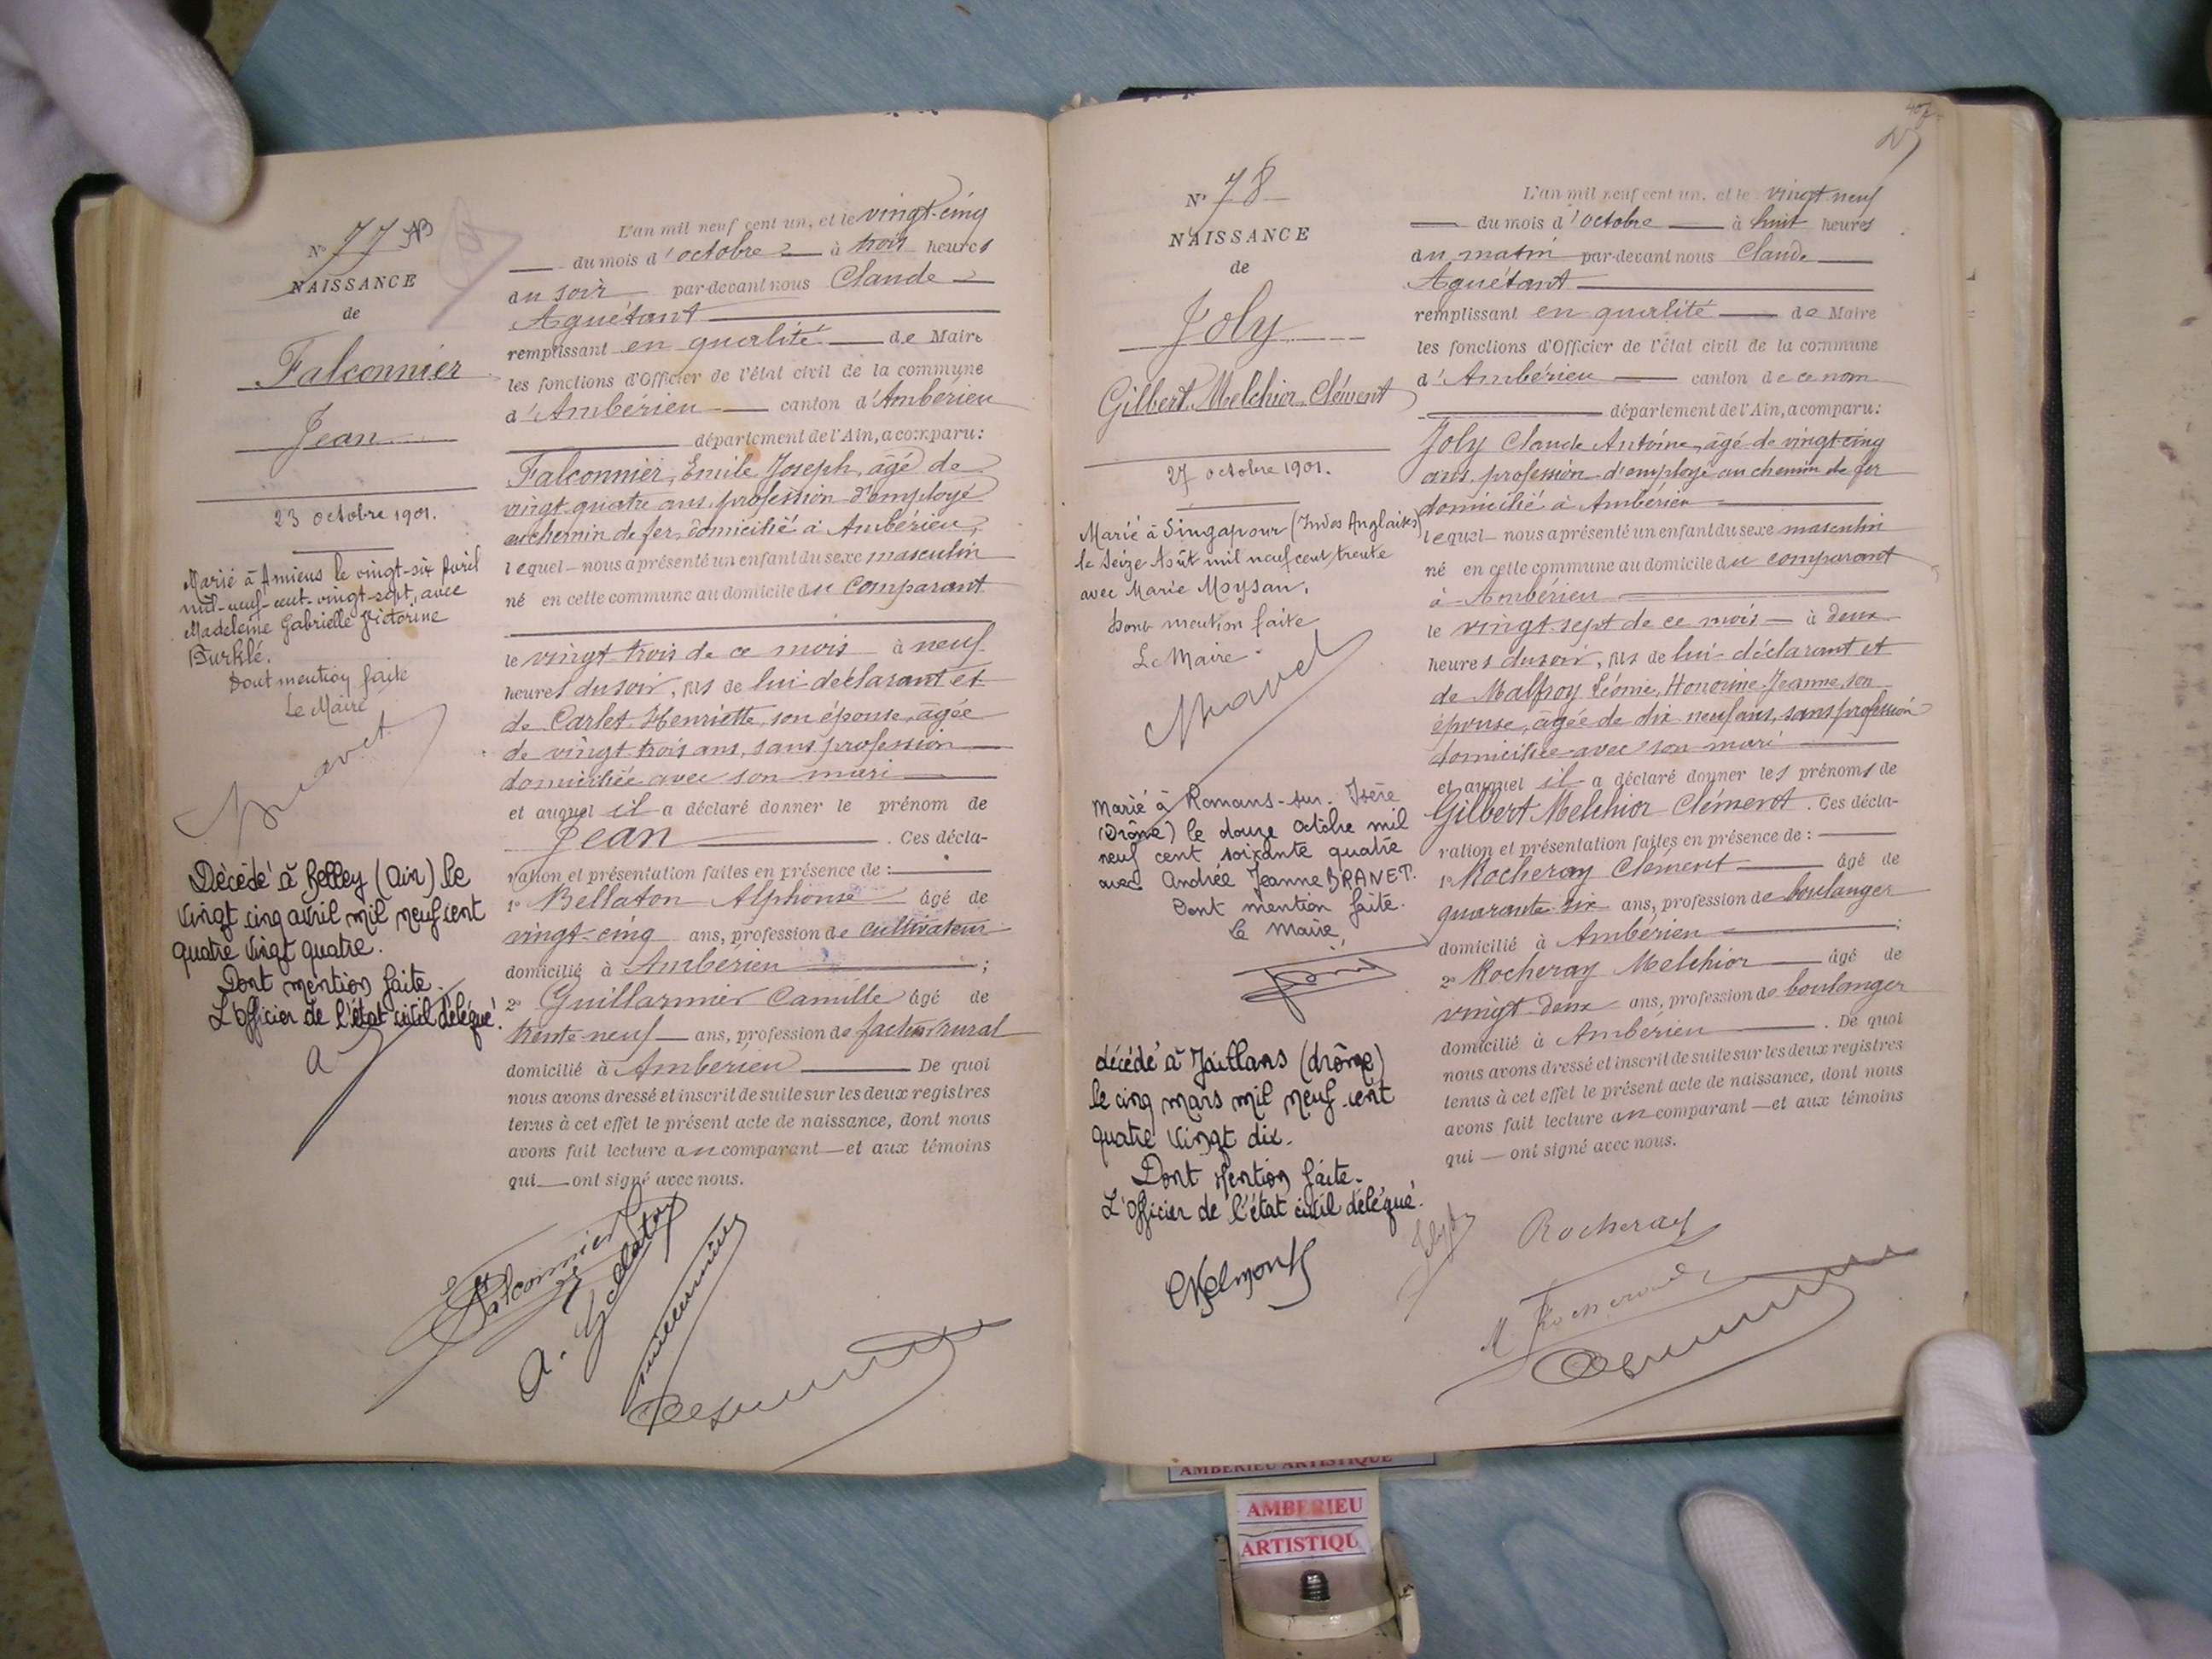 N° 77
NAISSANCE
de
Falconnier
Jean
23 octobre 1901.
Marié à Amiens le vingt-six Avril
mil-neuf-cent-vingt-sept, avec
Madeleine Gabrielle Victorine
Burklé.
Dont mention faite
Le Maire
Décédé à Belley (Ain) le
vingt cinq avril mil neuf cent
quatre vingt quatre.
Dont mention faite.
L'Officier de l'état civil délégué.
L'an mil neuf cent un, et le vingt-cinq
du mois d'octobre à trois heures
du soir par-devant nous Claude
Aguétant
remplissant en qualité de Maire
les fonctions d'Officier de l'état civil de la commune
d'Ambérieu canton d'Ambérieu
département de l'Ain, a comparu:
Falconnier, Emile Joseph, âgé de
vingt quatre ans, profession d'employé
au chemin de fer, domicilié à Ambérieu,
lequel nous a présenté un enfant du sexe masculin
né en cette commune au domicile du comparant
le vingt trois de ce mois à neuf
heures du soir, fils de lui déclarant et
de Carlet Henriette, son épouse, âgée
de vingt trois ans, sans profession
domiciliée avec son mari
et auquel il a déclaré donner le prénom de
Jean . Ces décla-
ration et présentation faites en présence de :
1° Bellaton Alphonse âgé de
vingt-cinq ans, profession de cultivateur
domicilié à Ambérieu ;
2° Guillarmier Camille âgé de
trente-neuf ans, profession de facteur rural
domicilié à Ambérieu De quoi
nous avons dressé et inscrit de suite sur les deux registres
tenus à cet effet le présent acte de naissance, dont nous
avons fait lecture au comparant et aux témoins
qui ont signé avec nous.
Falconnier
A. Bellaton
N° 78
NAISSANCE
de
Joly
Gilbert, Melchior, Clément
27 octobre 1901.
Marié à Singapour (Indes Anglaises)
le Seize Août mil neuf cent trente
avec Marie Moysan.
Dont mention faite
Le Maire
Marié à Romans-sur-Isère
(Drôme) le douze Octobre mil
neuf cent soixante quatre
avec Andrée Jeanne BRANET.
Dont mention faite.
Le Maire
décédé à Jaillans (drôme)
le cinq mars mil neuf cent
quatre vingt dix.
Dont mention faite.
L'Officier de l'état civil délégué.
L'an mil neuf cent un, et le vingt-neuf
du mois d'octobre à huit heures
du matin par-devant nous Claude
Aguétant
remplissant en qualité de Maire
les fonctions d'Officier de l'état civil de la commune
d'Ambérieu canton de ce nom
département de l'Ain, a comparu:
Joly Claude Antoine, âgé de vingt-cinq
ans, profession d'employé au chemin de fer
domicilié à Ambérieu
lequel nous a présenté un enfant du sexe masculin
né en cette commune au domicile du comparant
à Ambérieu
le vingt-sept de ce mois à deux
heures du soir, fils de lui déclarant et
de Malfroy Léonie, Honorine Jeanne, son
épouse, âgée de dix neuf ans, sans profession
domiciliée avec son mari
et auquel il a déclaré donner les prénoms de
Gilbert Melchior Clément . Ces décla-
ration et présentation faites en présence de :
1° Rocheray Clément âgé de
quarante six ans, profession de boulanger
domicilié à Ambérieu ;
2° Rocheray Melchior âgé de
vingt deux ans, profession de boulanger
domicilié à Ambérieu . De quoi
nous avons dressé et inscrit de suite sur les deux registres
tenus à cet effet le présent acte de naissance, dont nous
avons fait lecture au comparant et aux témoins
qui ont signé avec nous.
Rocheray
AMBERIEU ARTISTIQUE
AMBERIEU
ARTISTIQU